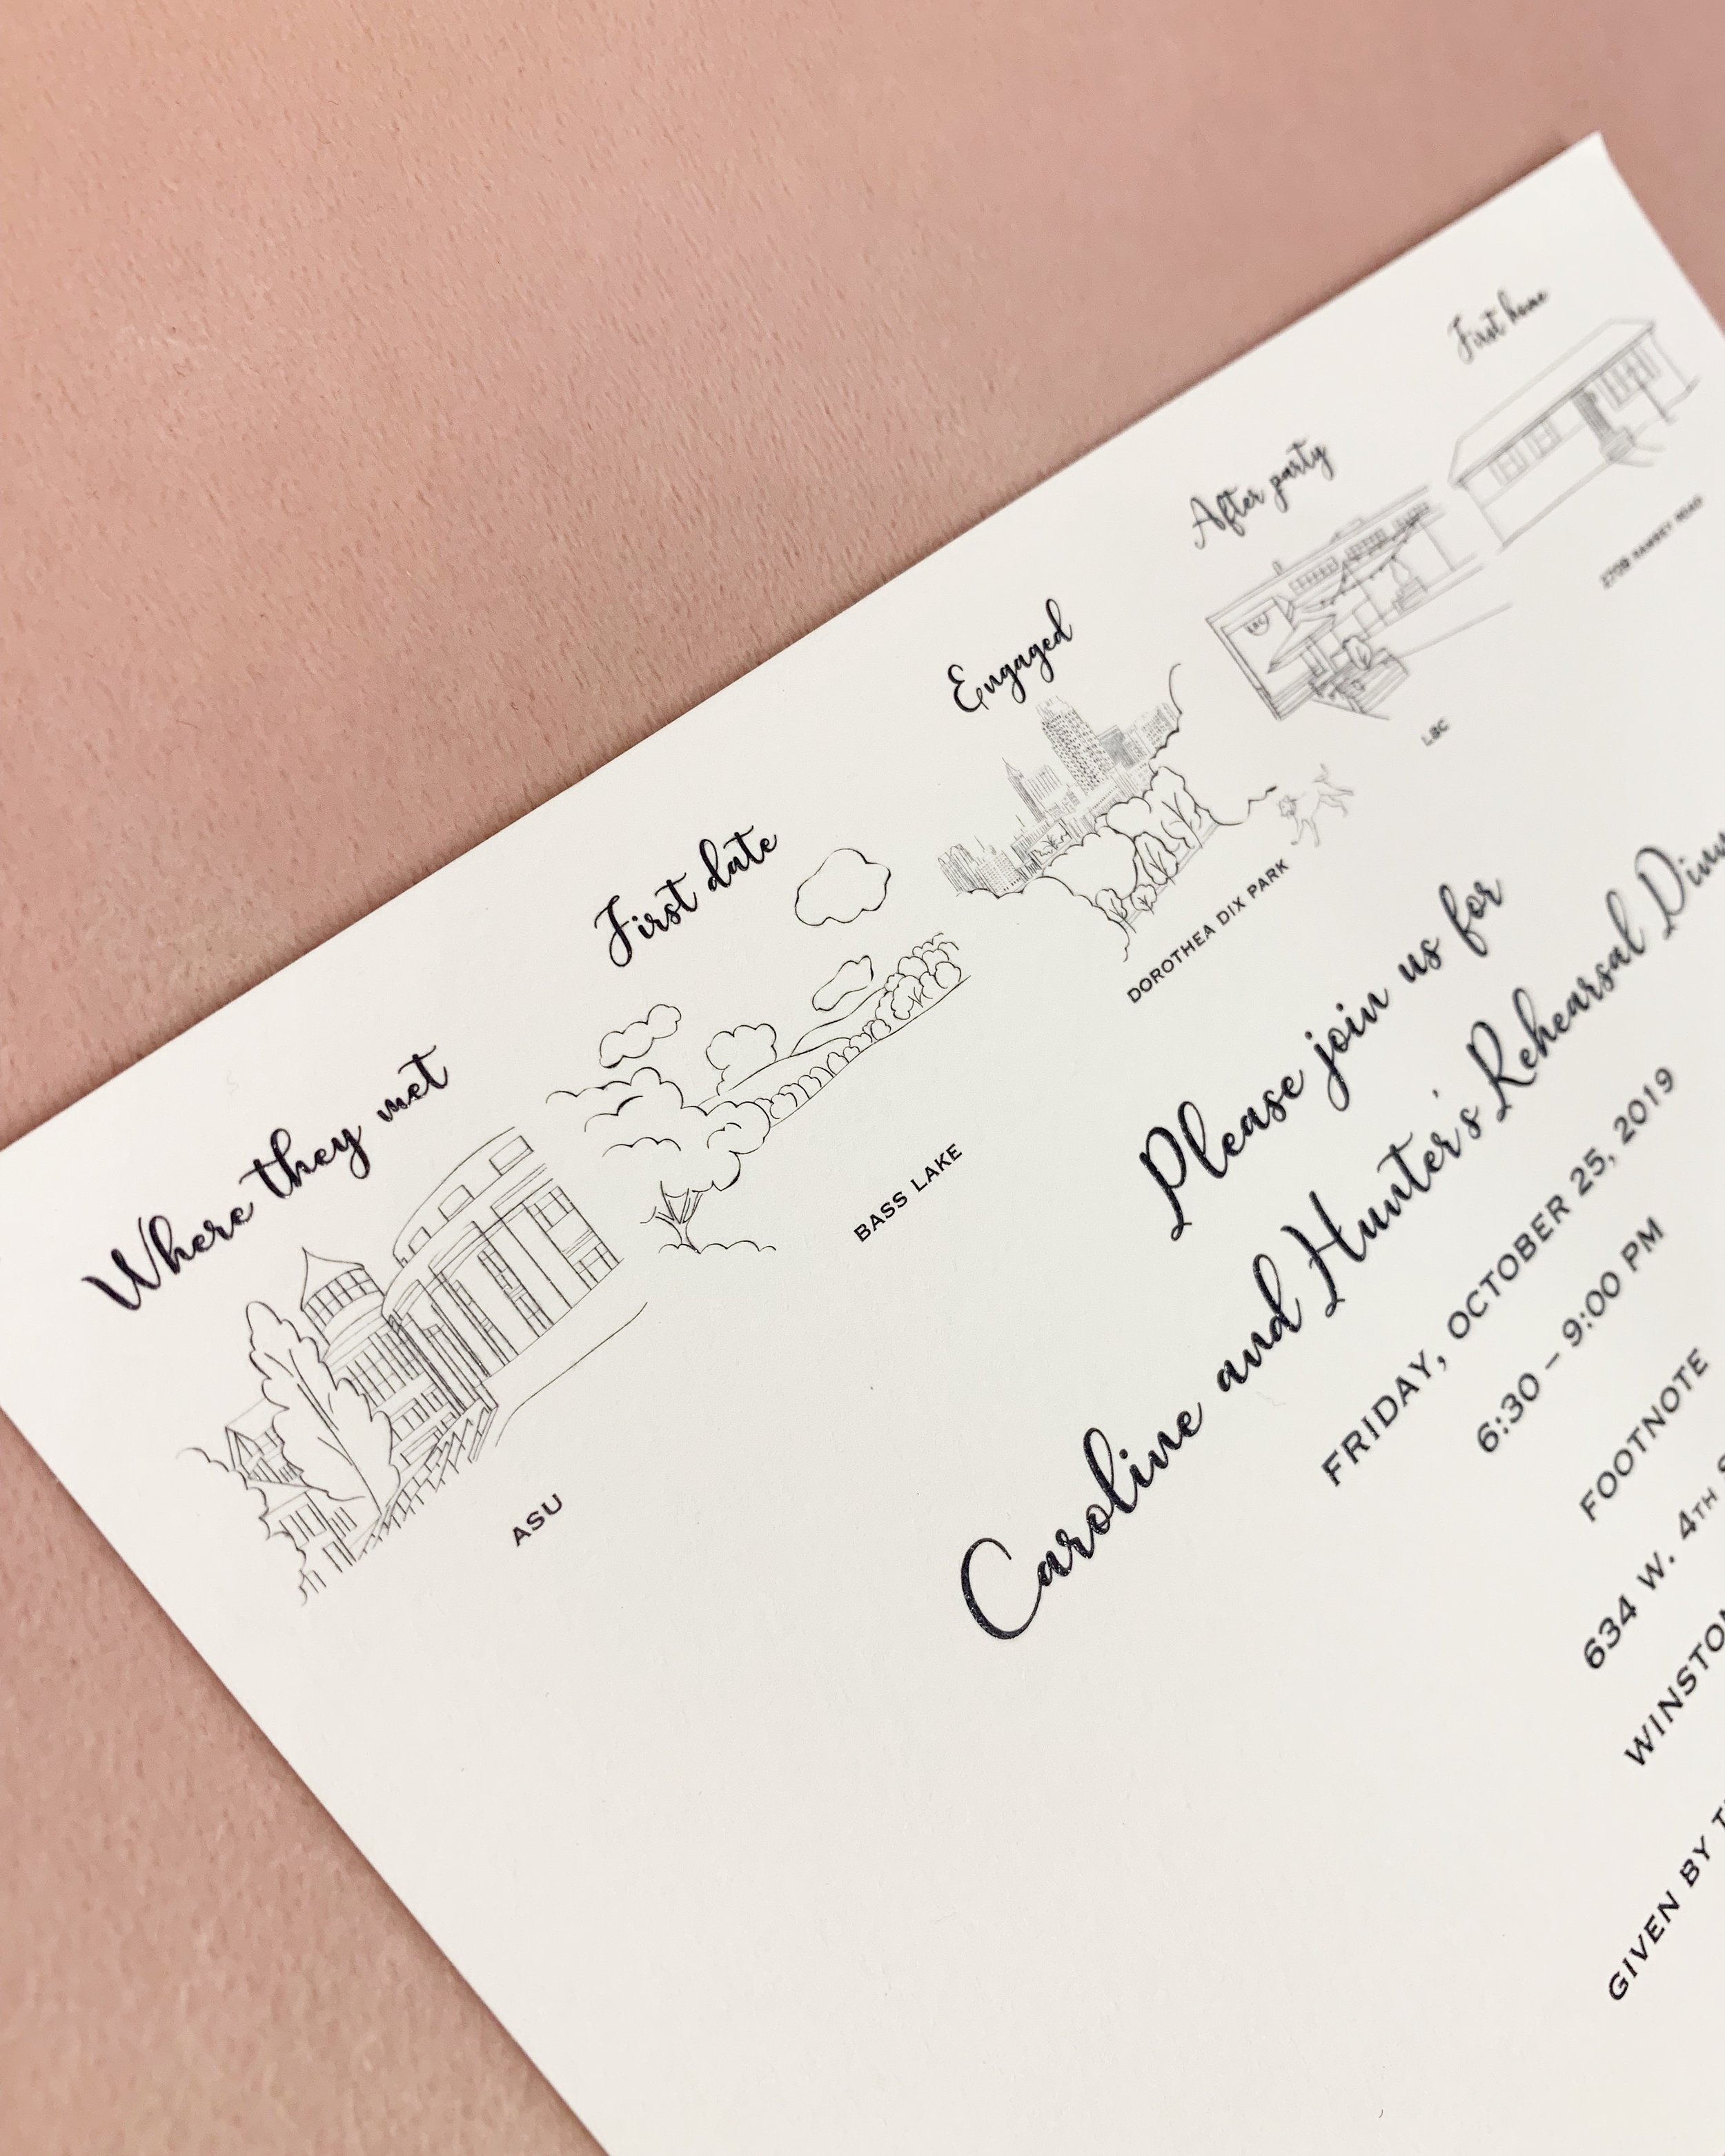 Where they met
ASU
First date
BASS LAKE
Engaged
DOROTHEA DIX PARK
After party
LBC
First home
ROAD
Please join us for
Caroline and Hunter's Rehearsal
FRIDAY, OCTOBER 25, 2019
6:30 – 9:00 PM
FOOTNOTE
634 W. 4TH
GIVEN BY